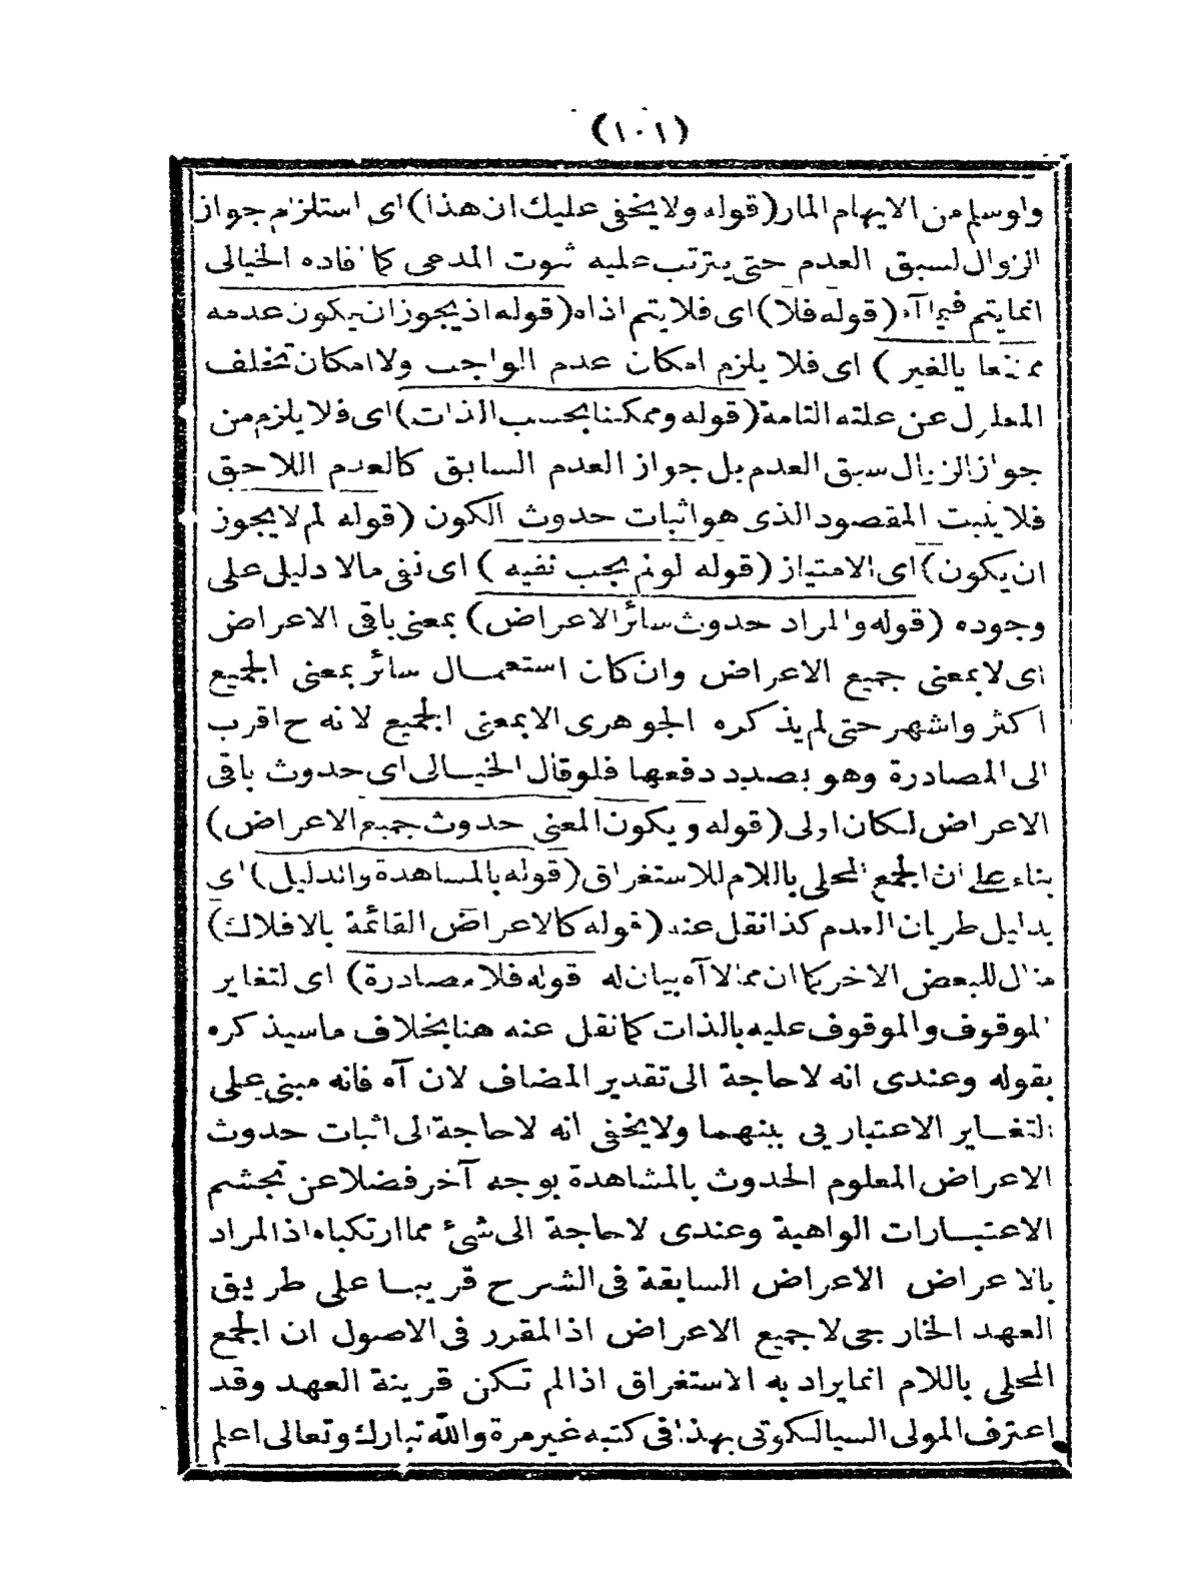 (١٠١)
ولوسلم من الايهام المار (قوله ولايخفى عليك ان هذا) اى استلزام جواز
الزوال لسبق العدم حتى يترتب عليه ثبوت المدعى كما فاده الخيالى
انمايتم فيما آه (قوله فلا) اى فلا يتم اذاه (قوله اذ يجوز ان يكون عدمه
ممتنعا بالغير ) اى فلا يلزم امكان عدم الواجب ولا امكان تخلف
المعلول عن علته التامة (قوله وممكنا بحسب الذات) اى فلا يلزم من
جواز الزوال سبق العدم بل جواز العدم السابق كالعدم اللاحق
فلا يثبت المقصود الذى هو اثبات حدوث الكون (قوله لم لا يجوز
ان يكون) اى الامتياز (قوله لو لم يجب نفيه ) اى نفى مالا دليل على
وجوده (قوله والمراد حدوث سائر الاعراض) بمعنى باقى الاعراض
اى لا بمعنى جميع الاعراض وان كان استعمال سائر بمعنى الجميع
اكثر واشهر حتى لم يذكره الجوهرى الا بمعنى الجميع لانه ح اقرب
الى المصادرة وهو بصدد دفعها فلو قال الخيالى اى حدوث باقى
الاعراض لكان اولى (قوله ويكون المعنى حدوث جميع الاعراض)
بناء على ان الجمع المحلى باللام للاستغراق (قوله بالمشاهدة والدليل) اى
بدليل طريان العدم كذا نقل عنه (قوله كالاعراض القائمة بالافلاك)
مثال للبعض الاخر كما ان مثلا آه بيان له قوله فلا مصادرة) اى لتغاير
الموقوف والموقوف عليه بالذات كما نقل عنه هنا بخلاف ماسيذكره
بقوله وعندى انه لا حاجة الى تقدير المضاف لان آه فانه مبنى على
التغاير الاعتبارى بينهما ولا يخفى انه لا حاجة الى اثبات حدوث
الاعراض المعلوم الحدوث بالمشاهدة بوجه آخر فضلا عن تجشم
الاعتبارات الواهية وعندى لا حاجة الى شئ مما ارتكباه اذ المراد
بالاعراض الاعراض السابقة فى الشرح قريبا على طريق
العهد الخارجى لا جميع الاعراض اذ المقرر فى الاصول ان الجمع
المحلى باللام انما يراد به الاستغراق اذا لم تكن قرينة العهد وقد
اعترف المولى السيالكوتى بهذا فى كتبه غير مرة والله تبارك وتعالى اعلم